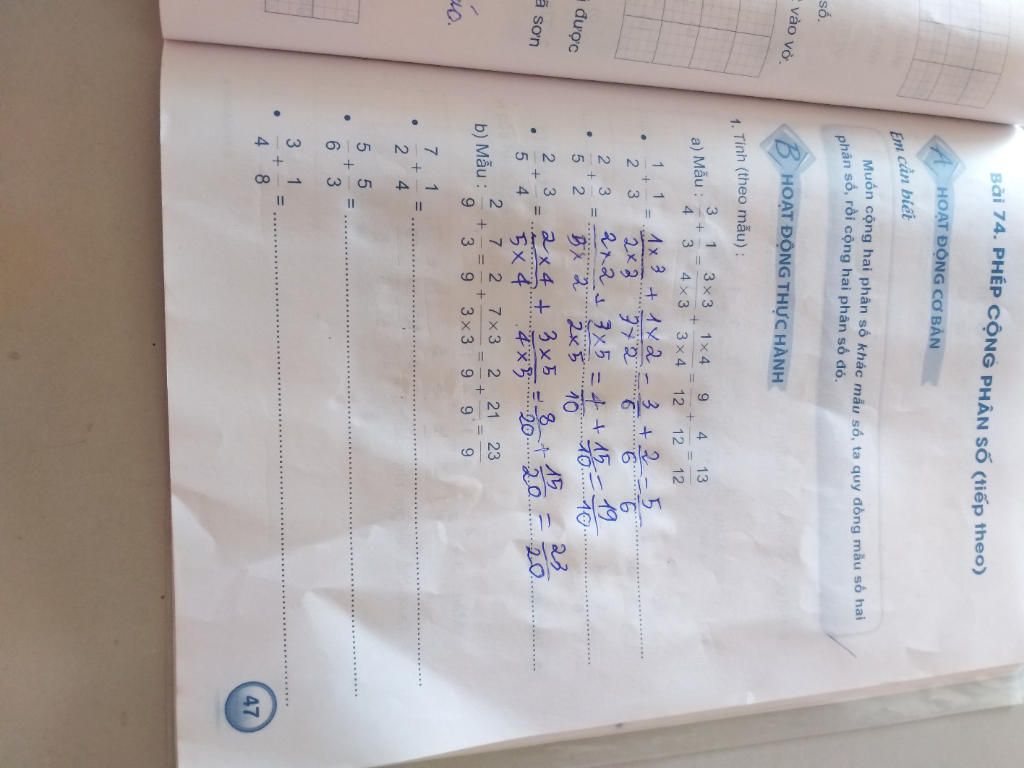 số.
vào vở.
được
ã sơn
Bài 74. PHÉP CỘNG PHÂN SỐ (tiếp theo)
A HOẠT ĐỘNG CƠ BẢN
Em cần biết
Muốn cộng hai phân số khác mẫu số, ta quy đồng mẫu số hai
phân số, rồi cộng hai phân số đó.
B HOẠT ĐỘNG THỰC HÀNH
1. Tính (theo mẫu) :
a) Mẫu : 3/4 + 1/3 = 3×3/4×3 + 1×4/3×4 = 9/12 + 4/12 = 13/12
• 1/2 + 1/3 = 1×3/2×3 + 1×2/3×2 = 3/6 + 2/6 = 5/6
• 2/5 + 3/2 = 2×2/5×2 + 3×5/2×5 = 4/10 + 15/10 = 19/10
• 2/5 + 3/4 = 2×4/5×4 + 3×5/4×5 = 8/20 + 15/20 = 23/20
b) Mẫu : 2/9 + 7/3 = 2/9 + 7×3/3×3 = 2/9 + 21/9 = 23/9
• 7/2 + 1/4 = ........
• 5/6 + 5/3 = ........
• 3/4 + 1/8 = ........
47